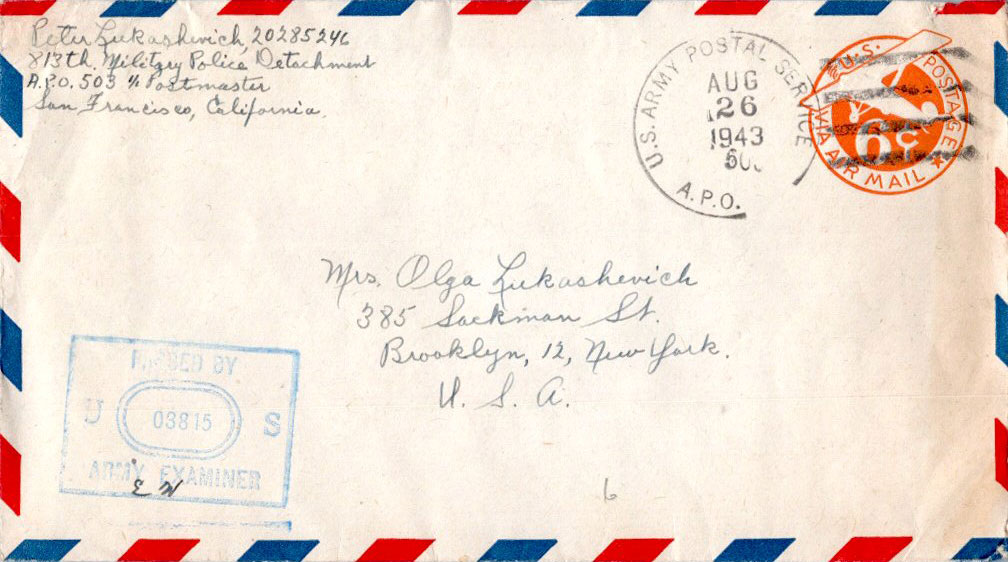 Peter Lukashevich, 20285246
813th. Military Police Detachment
A.P.O. 503 % Postmaster
San Francisco, California.
U.S. ARMY POSTAL SERVICE
AUG
26
1943
A.P.O.
U.S. POSTAGE
6c
VIA AIR MAIL
Mrs. Olga Lukashevich
385 Sackman St.
Brooklyn, 12, New York.
U. S. A.
PASSED BY
U 03815 S
ARMY EXAMINER
6